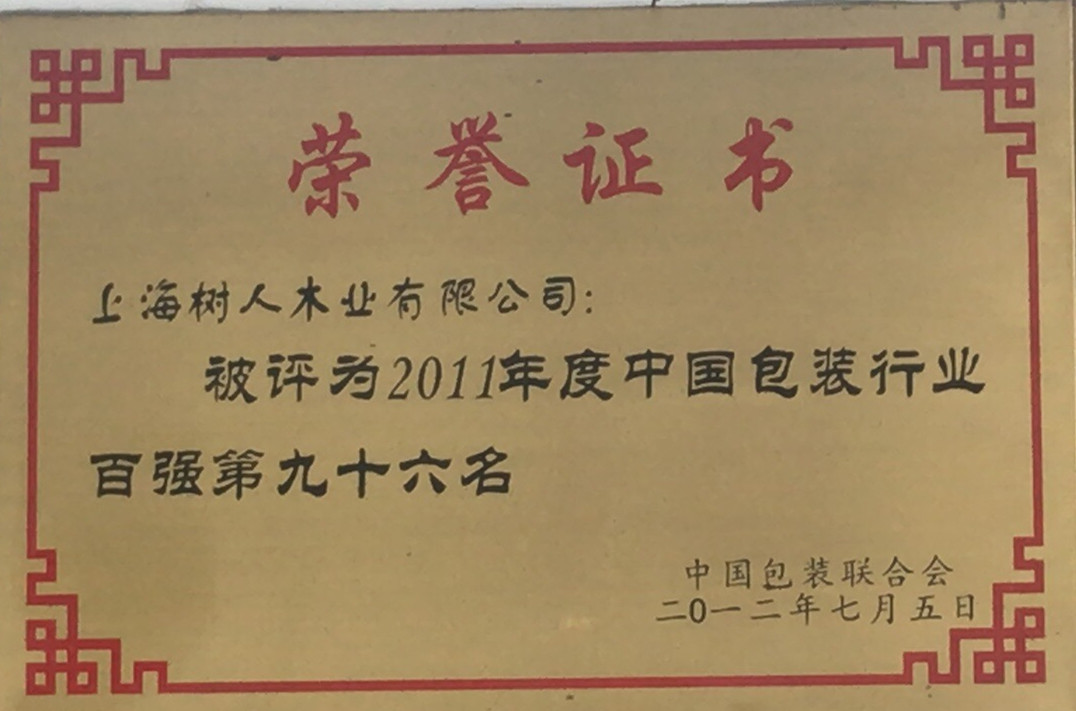 荣誉证书
上海树人木业有限公司:
被评为2011年度中国包装行业
百强第九十六名
中国包装联合会
二0一二年七月五日